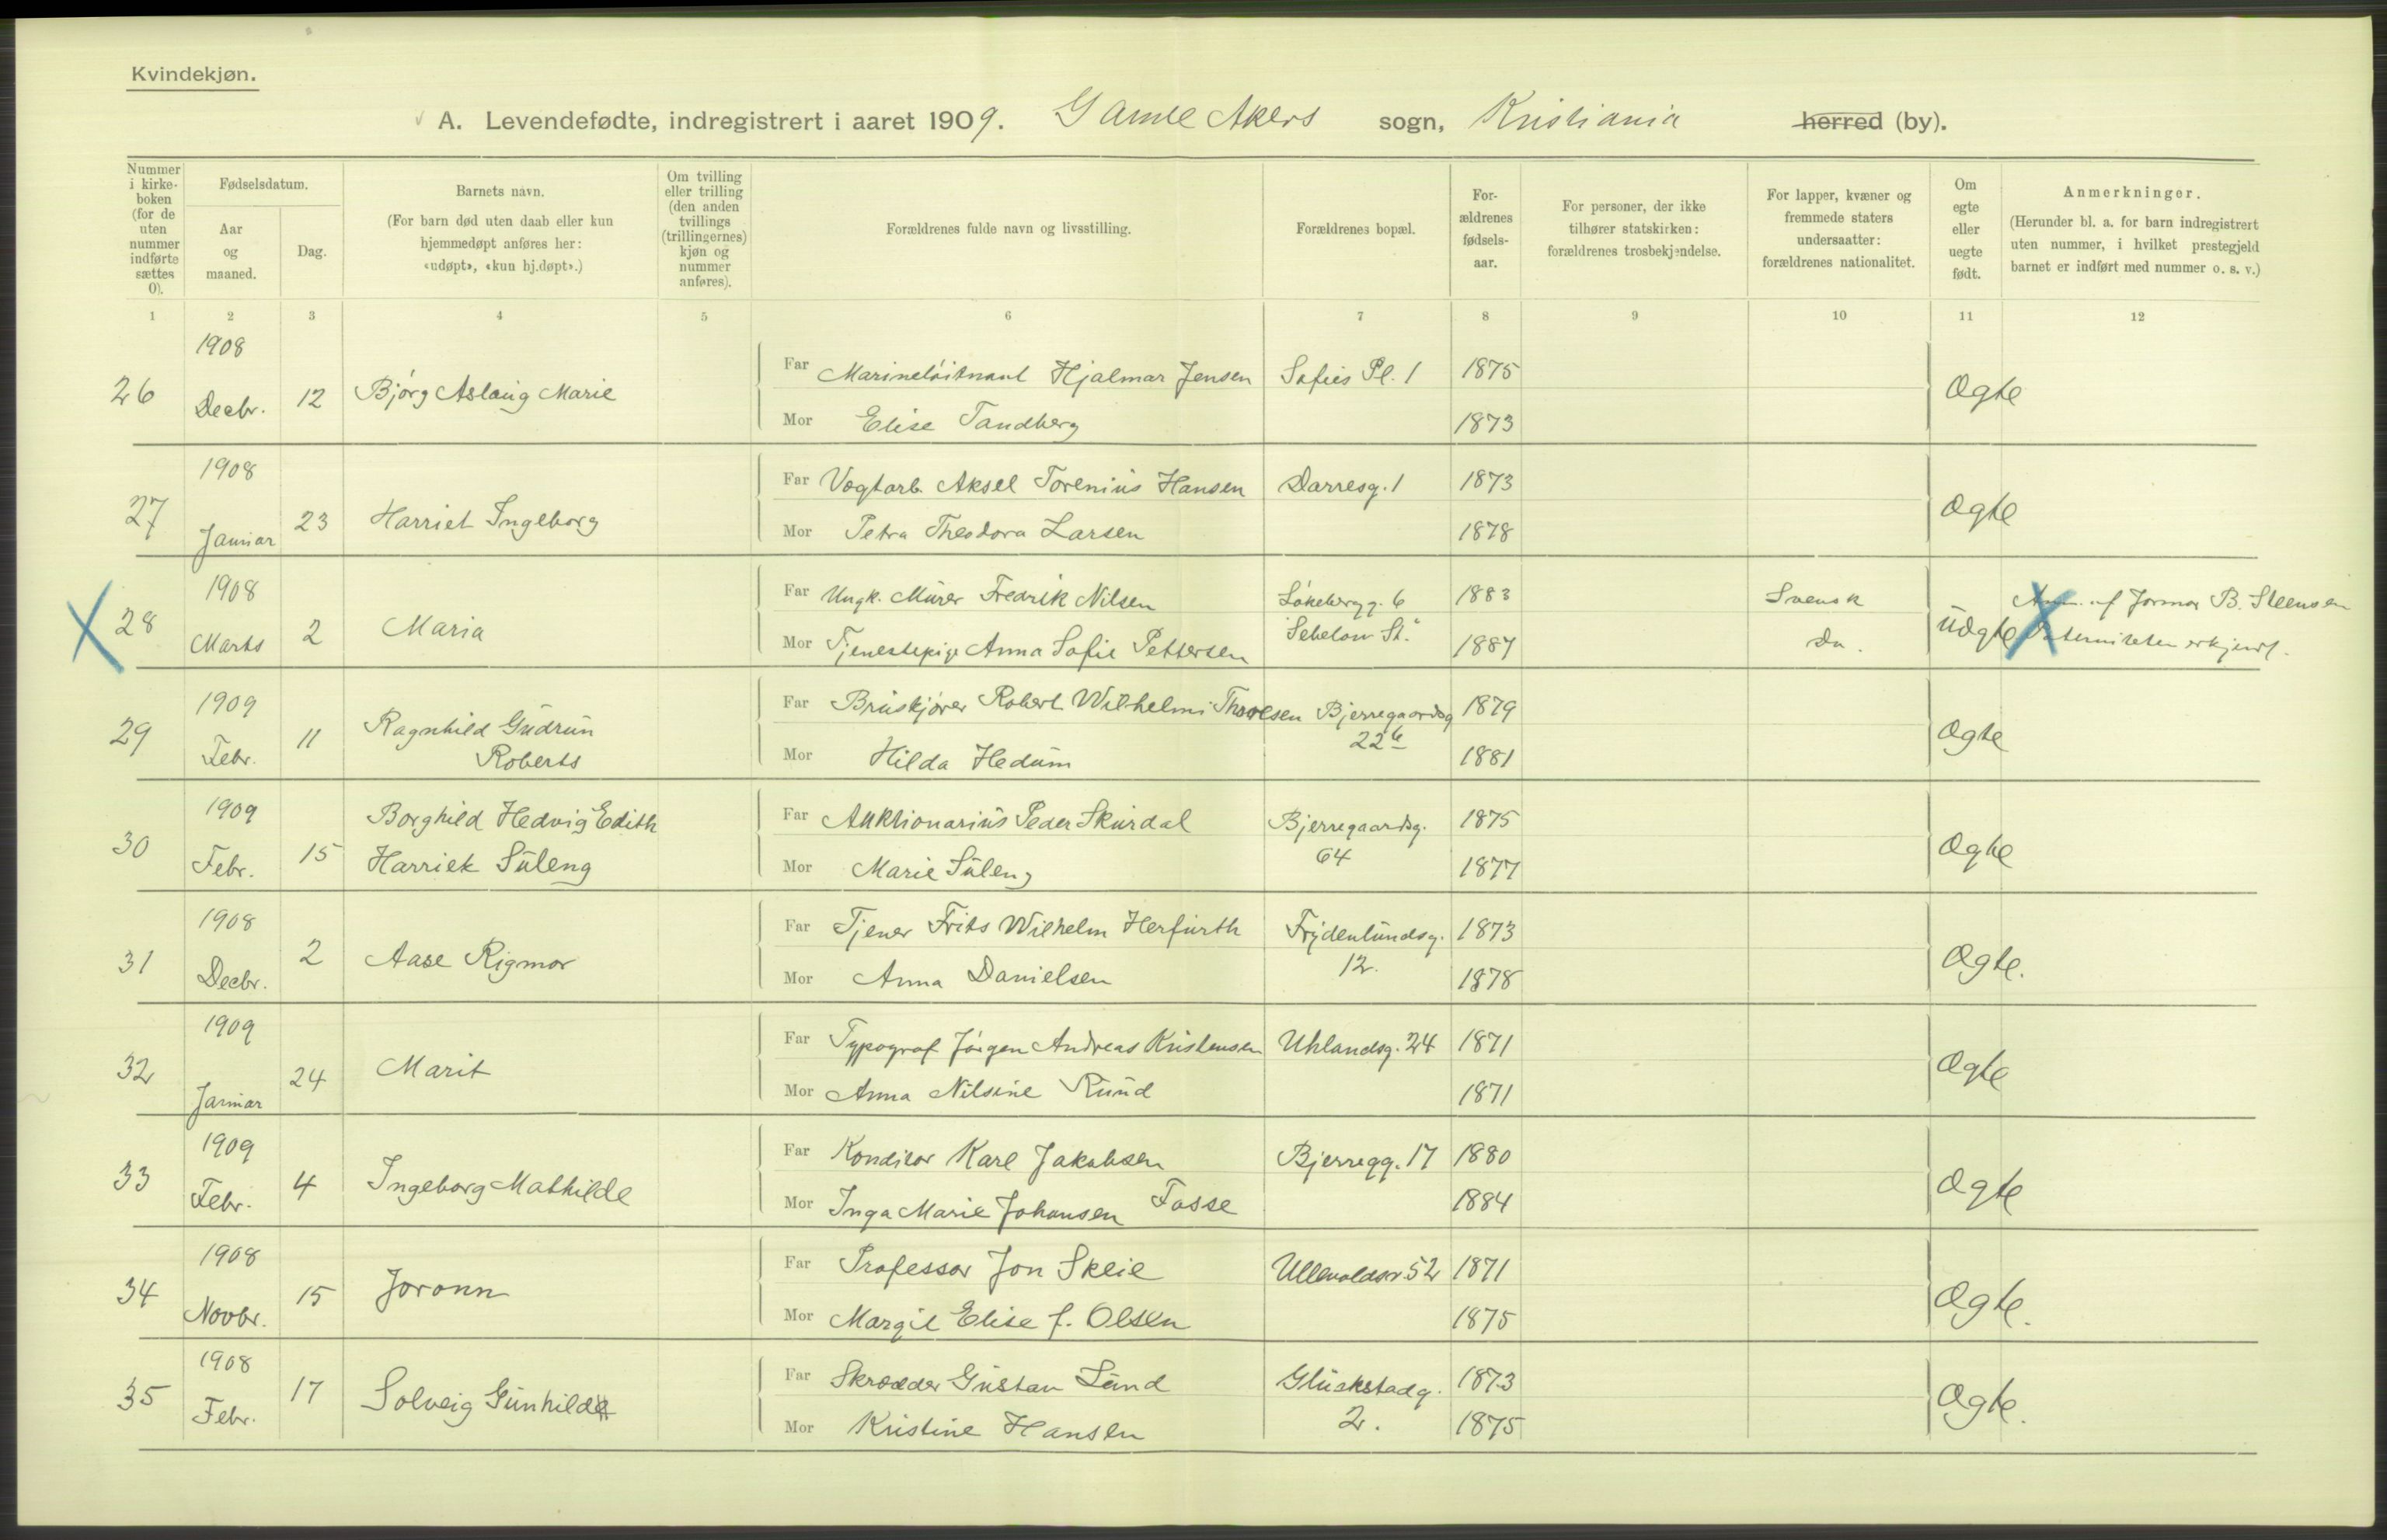 Kvindekjøn.
A. Levendefødte, indregistrert i aaret 1909. Gamle Akers sogn, Kristiania herred (by).
Nummer i kirkeboken (for de uten nummer indførte sættes 0).
Fødselsdatum.
Aar og maaned.
Dag.
Barnets navn.
(For barn død uten daab eller kun hjemmedøpt anføres her: «udøpt», «kun hj.døpt».)
Om tvilling eller trilling (den anden tvillings (trillingernes) kjøn og nummer anføres).
Forældrenes fulde navn og livsstilling.
Forældrenes bopæl.
Forældrenes fødselsaar.
For personer, der ikke tilhører statskirken: forældrenes trosbekjendelse.
For lapper, kvæner og fremmede staters undersaatter: forældrenes nationalitet.
Om egte eller uegte født.
Anmerkninger.
(Herunder bl. a. for barn indregistrert uten nummer, i hvilket prestegjeld barnet er indført med nummer o. s. v.)
1 2 3 4 5 6 7 8 9 10 11 12
26 1908 Decbr. 12 Bjørg Aslaug Marie Far Marineløitnant Hjalmar Jensen Sofies Pl. 1 1875 Ægte
Mor Elise Tandberg 1873
27 1908 Januar 23 Harriet Ingeborg Far Vogtarb. Aksel Torenius Hansen Darresg. 1 1873 Ægte
Mor Petra Theodora Larsen 1878
28 1908 Marts 2 Maria Far Ungk. Murer Fredrik Nilsen Løkebergg. 6 1883 Svensk Uægte af Jormor B. Steensen
Mor Tjenestepige Anna Sofie Pettersen "Sehelow St." 1887 Do. Paterniteten erkjendt.
29 1909 Febr. 11 Ragnhild Gudrun Roberts Far Bruskjører Robert Wilhelm Thoresen Bjerregaardsg 22b 1879 Ægte
Mor Hilda Hedum 1881
30 1909 Febr. 15 Borghild Hedvig Edith Harriet Suleng Far Auktionarius Peder Skurdal Bjerregaardsg. 64 1875 Ægte
Mor Marie Suleng 1877
31 1908 Decbr. 2 Aase Rigmor Far Tjener Frits Wilhelm Herfurth Frydenlundsg. 12. 1873 Ægte.
Mor Anna Danielsen 1878
32 1909 Januar 24 Marit Far Typograf Jørgen Andreas Kristensen Uhlandsg. 24 1871 Ægte
Mor Anna Nilsine Rund 1871
33 1909 Febr. 4 Ingeborg Mathilde Far Konditor Karl Jakobsen Bjerregg. 17 1880 Ægte
Mor Inga Marie Johansen Fosse 1884
34 1908 Novbr. 15 Joronn Far Professor Jon Skeie Ullevoldsv. 52 1871 Ægte.
Mor Margit Elise f. Olsen 1875
35 1908 Febr. 17 Solveig Gunhild Far Skrædder Gustav Lund Gluckstadg. 2. 1873 Ægte.
Mor Kristine Hansen 1875